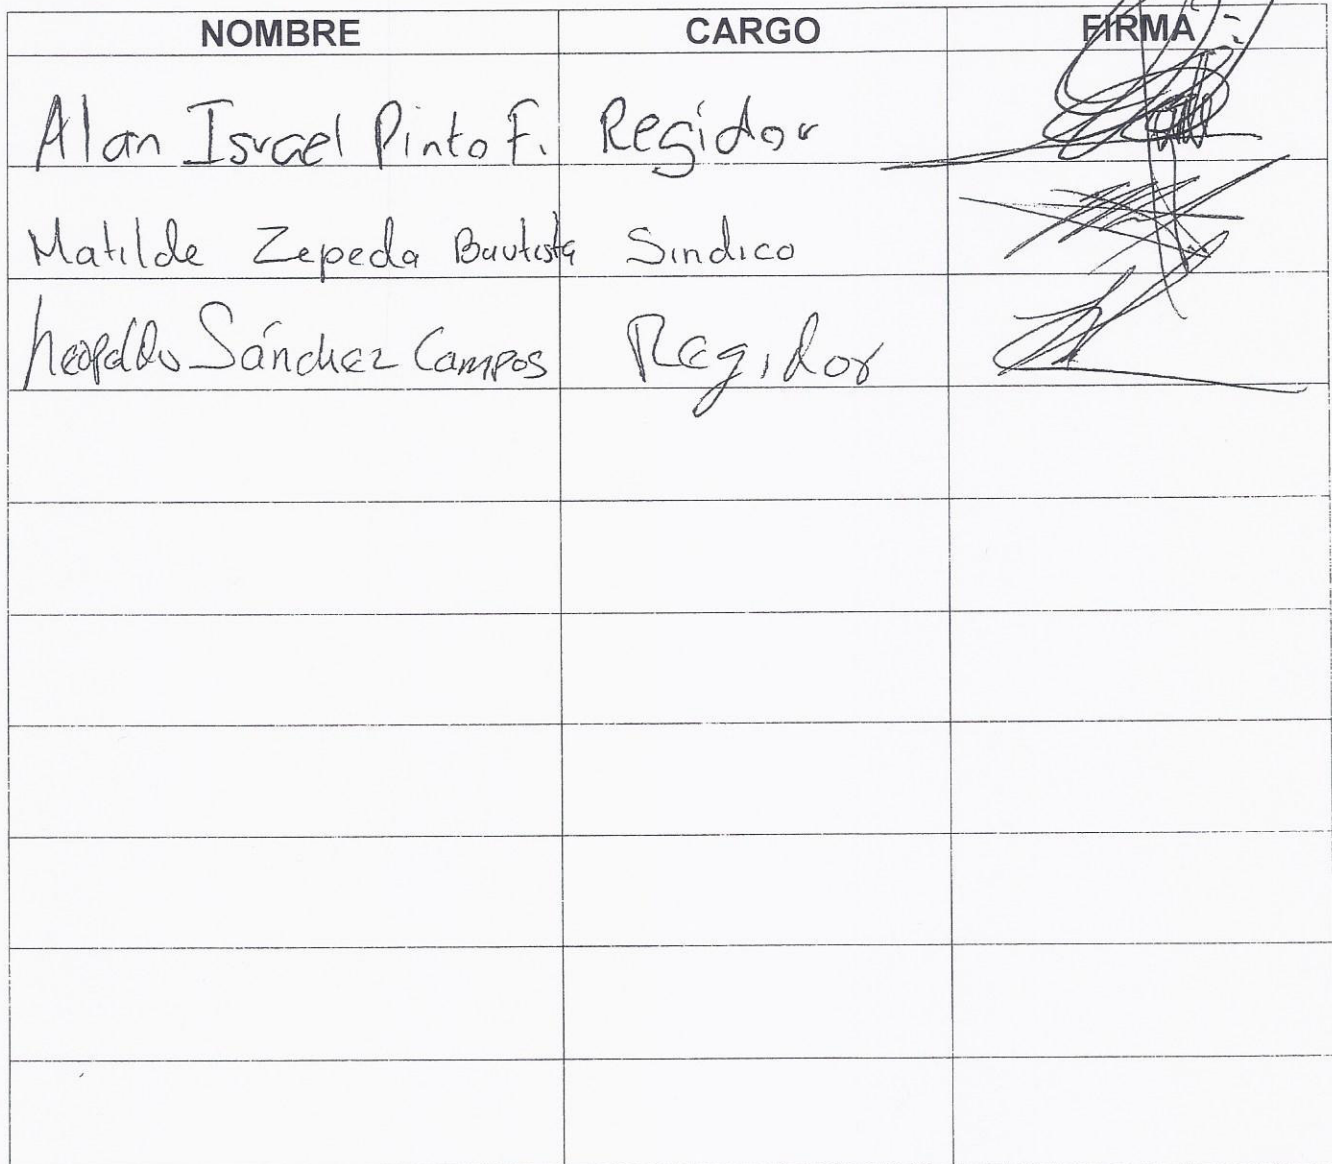 NOMBRE CARGO FIRMA
Alan Israel Pinto F. Regidor
Matilde Zepeda Bautista Sindico
Leopoldo Sánchez Campos Regidor